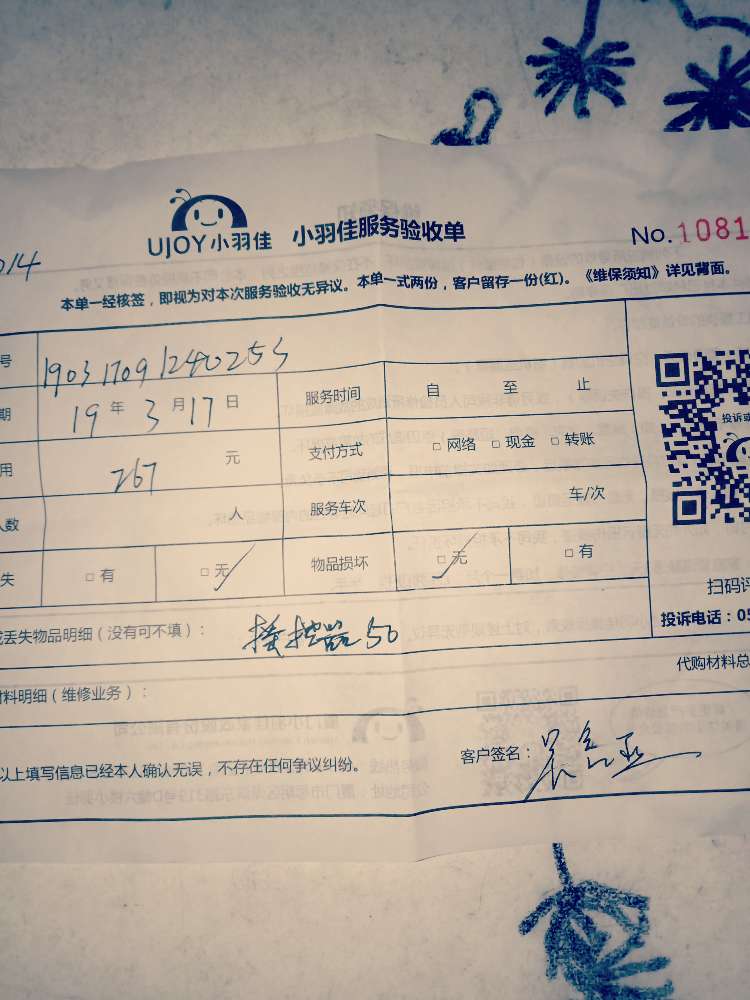 UJOY小羽佳 小羽佳服务验收单
No.1081
014
本单一经核签，即视为对本次服务验收无异议。本单一式两份，客户留存一份(红)。《维保须知》详见背面。
号 19031709124025
期 19年3月17日 服务时间 自 至 止
用 267 元 支付方式 □网络 □现金 □转账
人数 人 服务车次 车/次
失 □有 □无 物品损坏 □无 □有
投诉或
扫码评
投诉电话：05
或丢失物品明细（没有可不填）： 器50
代购材料总
材料明细（维修业务）：
以上填写信息已经本人确认无误，不存在任何争议纠纷。
客户签名：